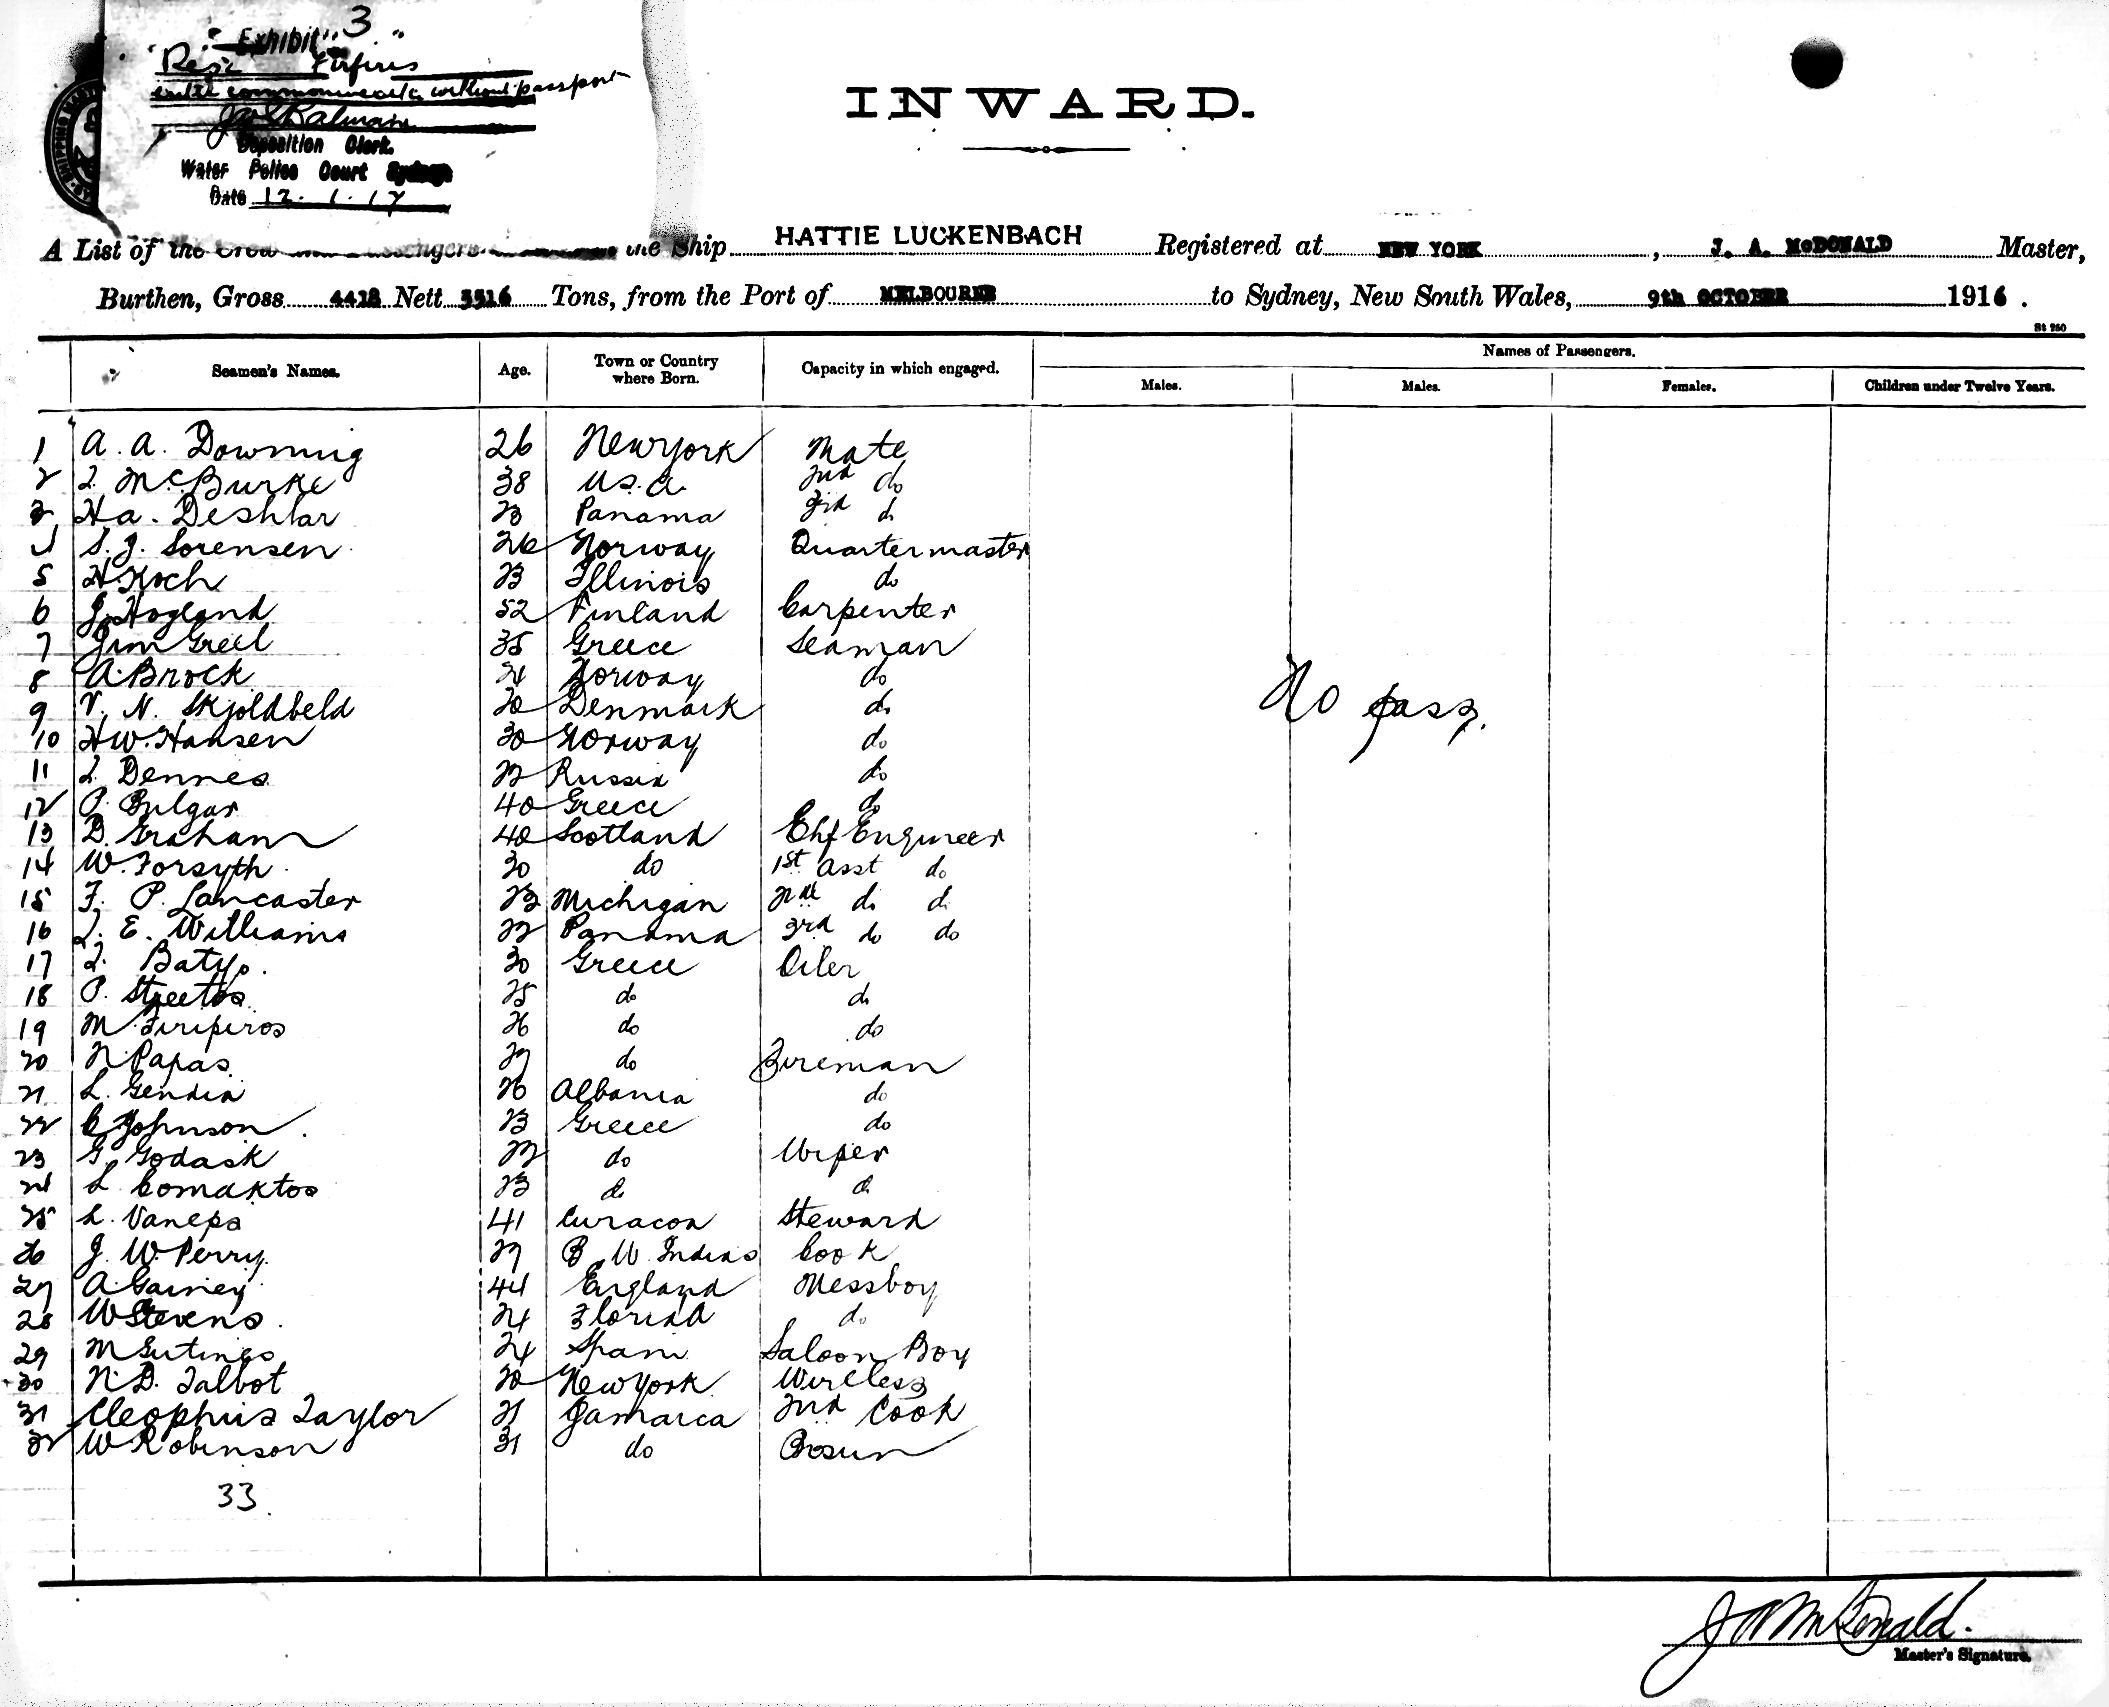 "Exhibit" 3"
Rex v Firfiris
enter commonwealth without passport
Deposition Clerk.
Water Police Court Sydney
Date 12.1.17
INWARD.
A List of the Crew and Passengers the Ship HATTIE LUCKENBACH Registered at NEW YORK, J. A. McDONALD Master,
Burthen, Gross 4418 Nett 3516 Tons, from the Port of MELBOURNE to Sydney, New South Wales, 9th OCTOBER 1916.
St 260
Seamen's Names. Age. Town or Country where Born. Capacity in which engaged. Names of Passengers.
Males. Males. Females. Children under Twelve Years.
1 A. A. Downing 26 New York Mate
2 T. McBurke 38 U.S.A. 2nd do
3 Ha. Deshlar 23 Panama 3rd do
4 S. J. Sorensen 26 Norway Quartermaster
5 H Koch 23 Illinois do
6 J. Hogland 52 Finland Carpenter
7 Jim Greel 35 Greece Seaman
8 A. Brock 24 Norway do
9 V. N. Skjoldbeld 20 Denmark do
10 HW. Hansen 30 Norway do
11 T. Dennes 22 Russia do
12 P. Bulgar 40 Greece do
13 D. Graham 40 Scotland Chf Engineer
14 W. Forsyth 30 do 1st Asst do
15 F. P. Lancaster 23 Michigan 2nd do do
16 T. E. Williams 22 Panama 3rd do do
17 T. Batys. 30 Greece Oiler
18 P. Streetos 25 do do
19 M. Firipiros 26 do do
20 N. Papas 27 do Fireman
21 L. Gendia 26 Albania do
22 C Johnson 23 Greece do
23 G. Godask 22 do Wiper
24 L Comaktos 23 do do
25 L. Vaneps 41 Curacoa Steward
26 J. W. Perry. 27 B. W. Indias Cook
27 A. Gainey 44 England Messboy
28 W Stevens 24 Florida do
29 M Gutines 24 Spain Saloon Boy
30 N. D. Talbot 20 New York Wireless
31 Cleophus Taylor 21 Jamaica 2nd Cook
32 W Robinson 31 do Bosun
33
No pass.
J A McDonald.
Master's Signature.